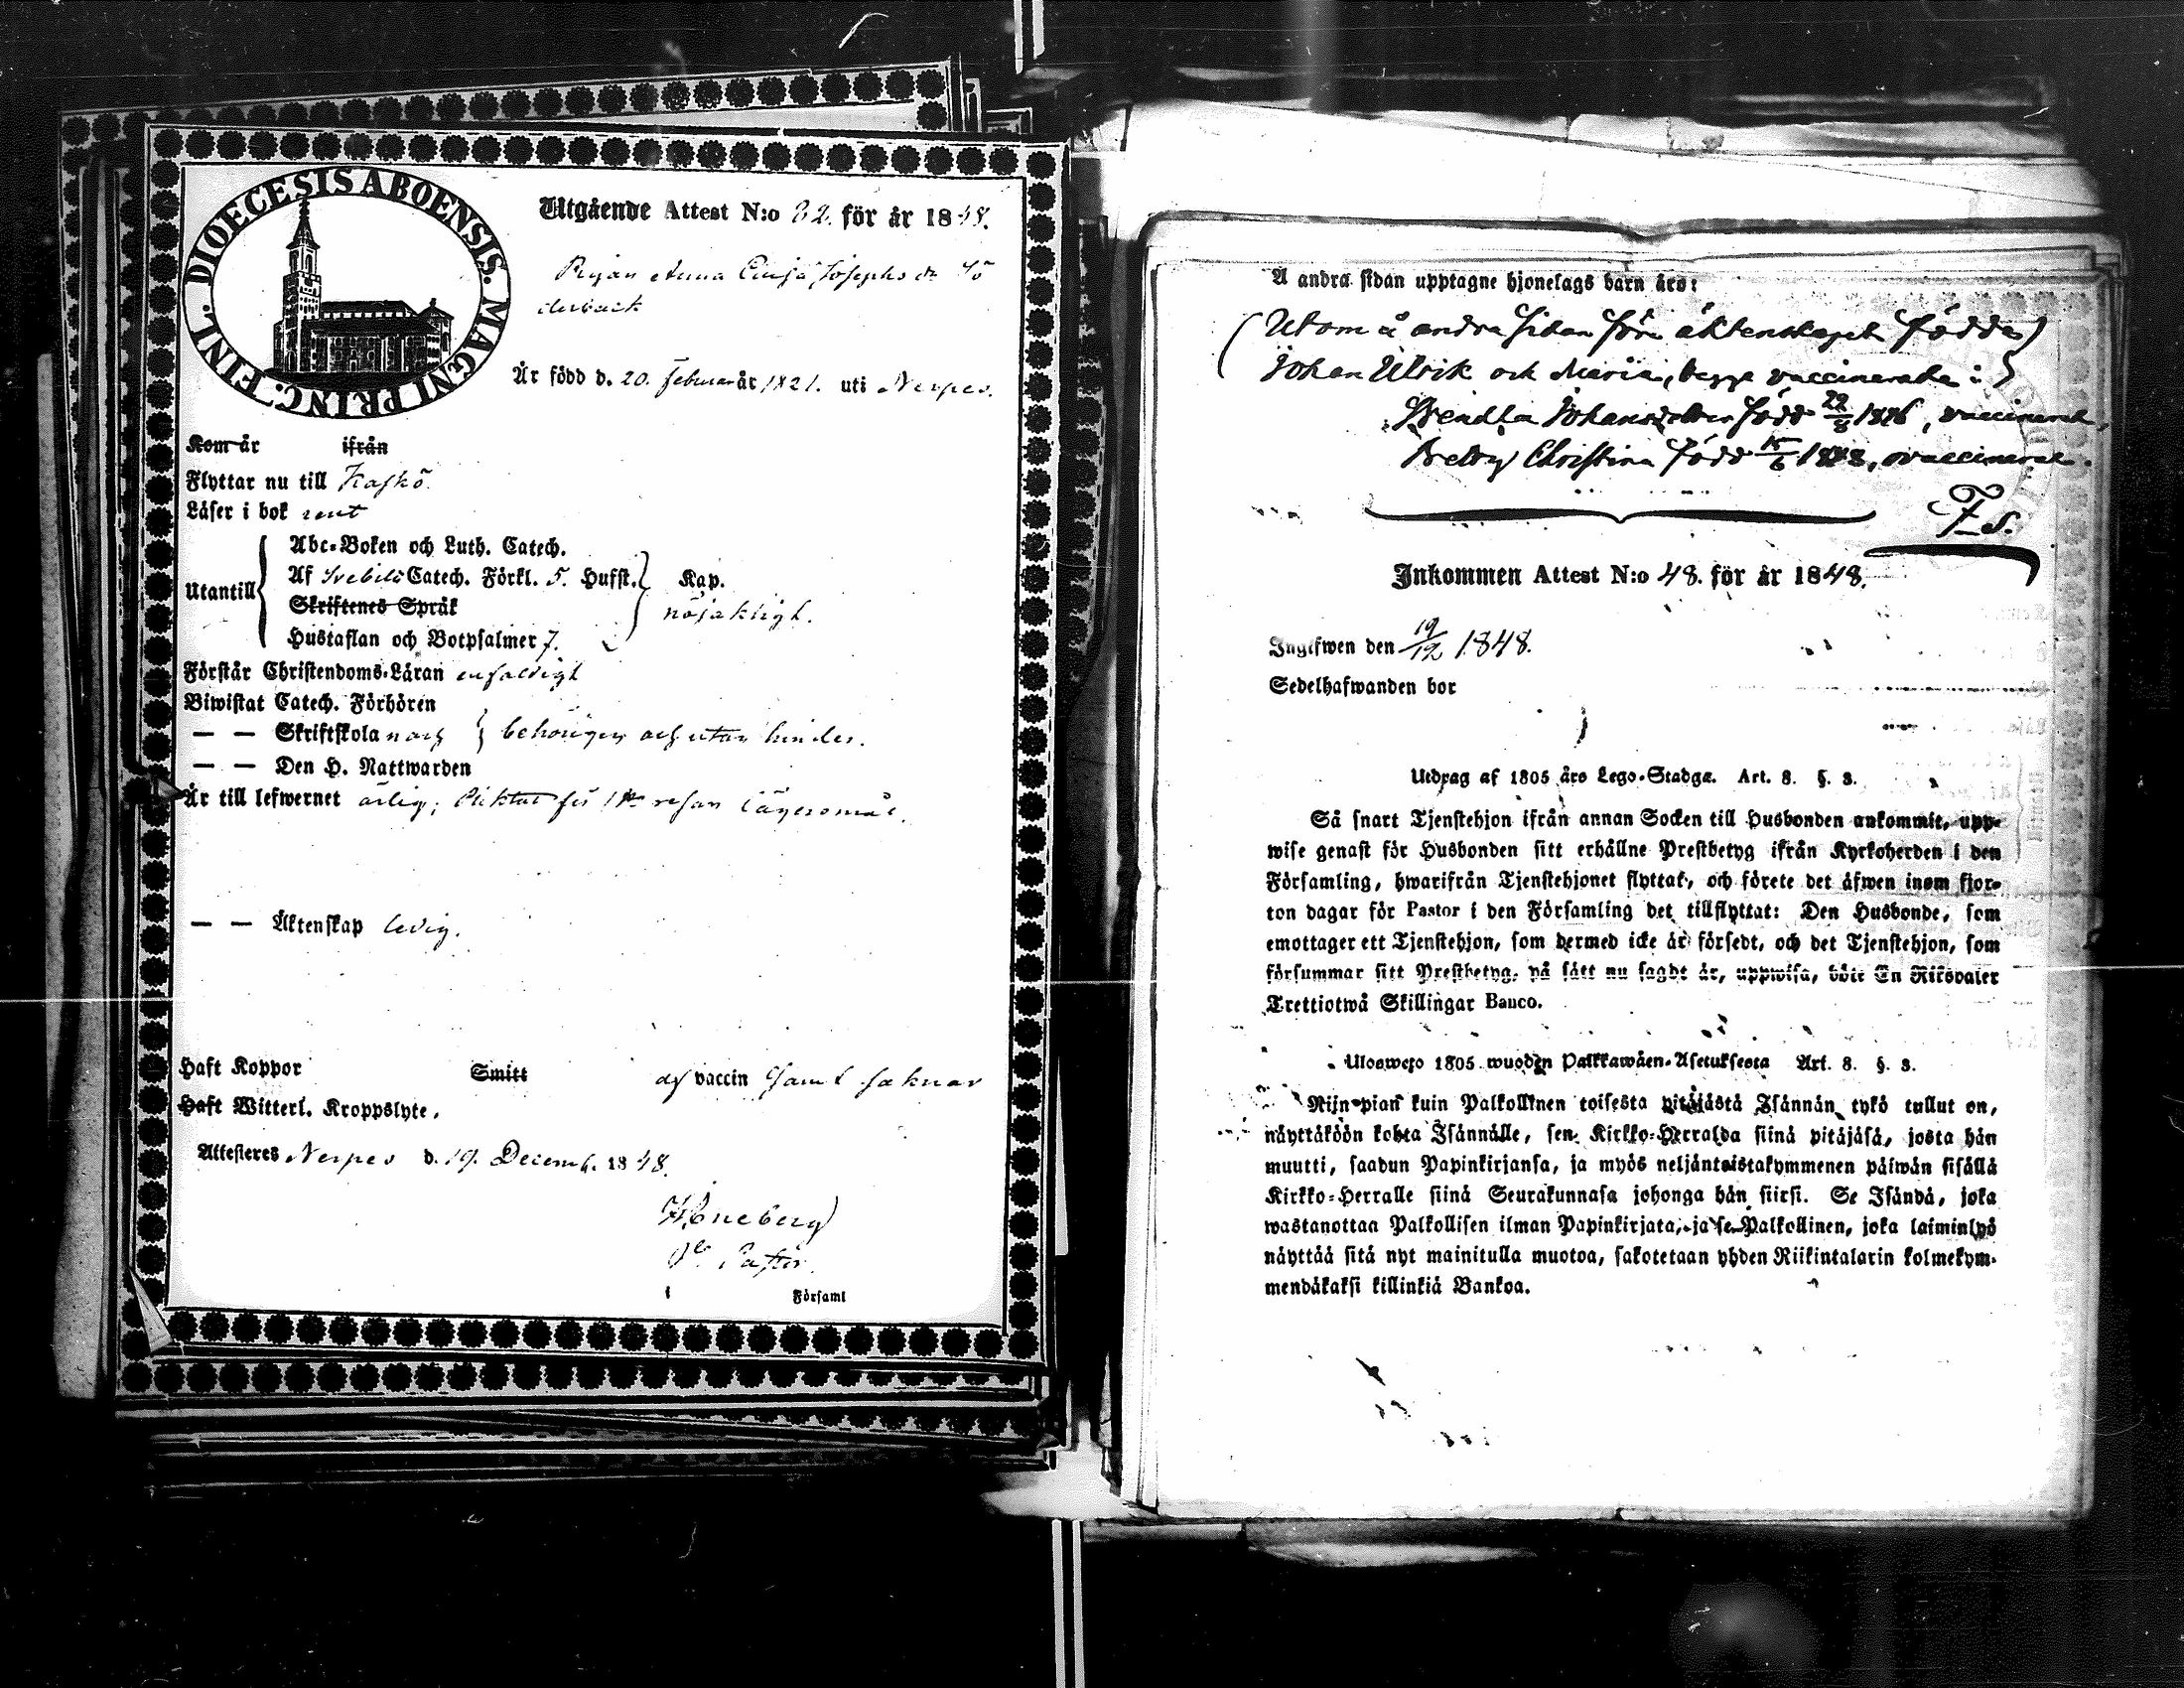 DIOECESIS ABOENSIS. MAGNI PRINC. FINL.
Utgående Attest N:o 32. för år 1848.
Pigan Anna Caisa Josephs dr Sö
derback
Är född d. 20. Februari år 1821. uti Nerpes.
Kom år ifrån
Flyttar nu till Kaskö.
Läser i bok rent
Abc-Boken och Luth. Catech.
Af Svebilii Catech. Förkl. 5. Hufst. Kap.
Utantill
Skriftenes Språk
nöjaktigt.
Hustaflan och Botpsalmer 7.
Förstår Christendoms-Läran enfaldigt
Biwistat Catech. Förhören
— — Skriftskola och behörigen och utan hinder.
— — Den H. Nattwarden
Är till lefwernet ärlig; Pliktat för 1sta resan Lägersmål.
— — Äktenskap ledig.
Haft Koppor Smitt af vaccin samt saknar
Haft Witterl. Kroppslyte.
Attesteras Nerpes d. 19. Decemb. 1848.
Pastor
Församl
Å andra sidan upptagne hjonelags barn äro:
(Utom å andra sidan före äktenskapet födda)
Johan Ulrik och Maria, begge vaccinerade:)
Wendla Johansdotter född 22/8 1846, vaccinerad
Bredry Christina född 15/6 1848, ovaccinerad.
Fs.
Inkommen Attest N:o 48. för år 1848.
Ingifwen den 19/12 1848.
Sedelhafwanden bor
Utdrag af 1805 års Lego-Stadga. Art. 8. §. 3.
Så snart Tjenstehjon ifrån annan Socken till Husbonden ankommit, upp-
wise genast för Husbonden sitt erhållne Prestbetyg ifrån Kyrkoherden i den
Församling, hwarifrån Tjenstehjonet flyttat, och förete det äfwen inom fjor-
ton dagar för Pastor i den Församling det tillflyttat: Den Husbonde, som
emottager ett Tjenstehjon, som dermed icke är försedt, och det Tjenstehjon, som
försummar sitt Prestbetyg, på sätt nu sagdt är, uppwisa, böte En Riksdaler
Trettiotwå Skillingar Banco.
Ulosweto 1805 wuoden Palkkawäen-Asetuksesta Art. 8. §. 3.
Niin pian kuin Palkollinen toisesta pitäjästä Isännän tykö tullut on,
näyttäköön kohta Isännälle, sen Kirkko-Herralda siinä pitäjäsä, josta hän
muutti, saadun Papinkirjansa, ja myös neljäntoistakymmenen päiwän sisällä
Kirkko-Herralle siinä Seurakunnasa johonga hän siirsi. Se Isändä, joka
wastanottaa Palkollisen ilman Papinkirjata, ja se Palkollinen, joka laiminlyö
näyttää sitä nyt mainitulla muotoa, sakotetaan yhden Riikintalarin kolmekym-
mendäkaksi killinkiä Bankoa.